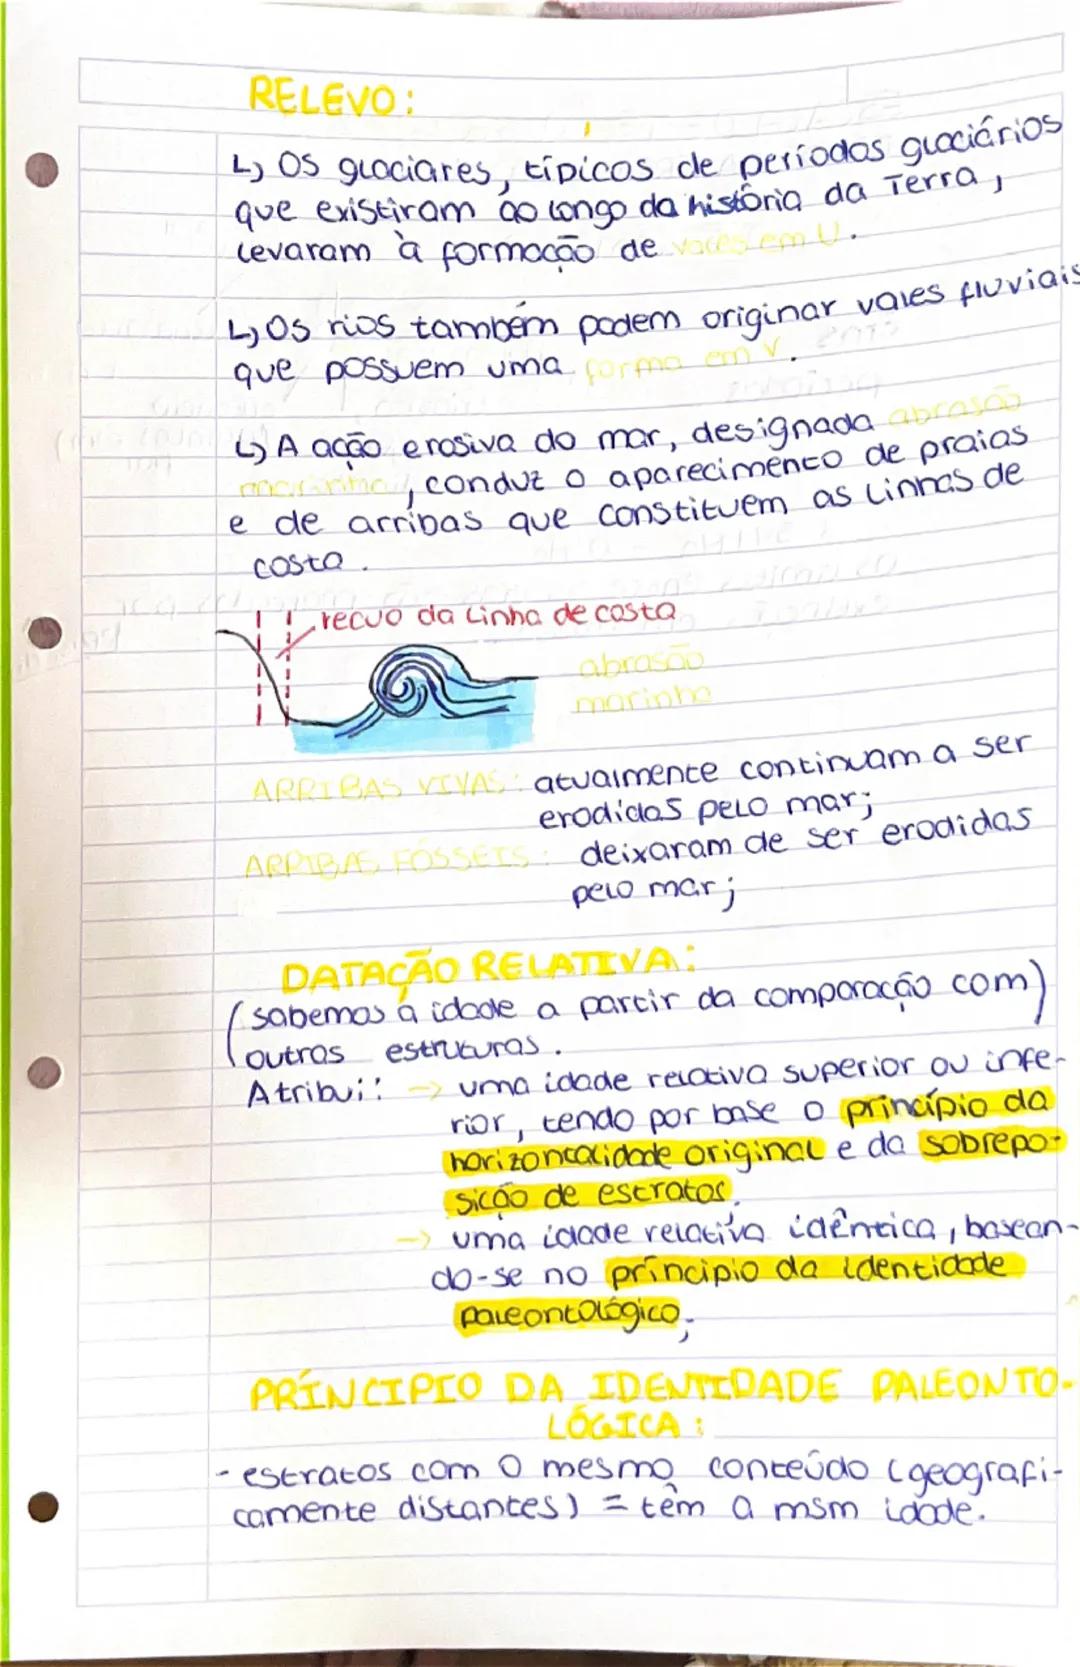 RELEVO:
↳ Os glaciares, típicos de períodos glaciários
que existiram ao longo da história da Terra,
levaram à formação de vales em U.
↳ Os rios também podem originar vales fluviais
que possuem uma forma em V.
↳ A ação erosiva do mar, designada abrasão
marinha, conduz o aparecimento de praias
e de arribas que constituem as linhas de
costa.
recuo da linha de costa
abrasão
marinha
ARRIBAS VIVAS: atualmente continuam a ser
erodidas pelo mar;
ARRIBAS FÓSSEIS: deixaram de ser erodidas
pelo mar;
DATAÇÃO RELATIVA:
(sabemos a idade a partir da comparação com
outras estruturas.)
Atribui: → uma idade relativa superior ou infe-
rior, tendo por base o princípio da
horizontalidade original e da sobrepo-
sição de estratos.
→ uma idade relativa idêntica, basean-
do-se no príncipio da identidade
paleontológico;
PRÍNCIPIO DA IDENTIDADE PALEONTO-
LÓGICA:
- estratos com o mesmo conteúdo (geografi-
camente distantes) = têm a msm idade.